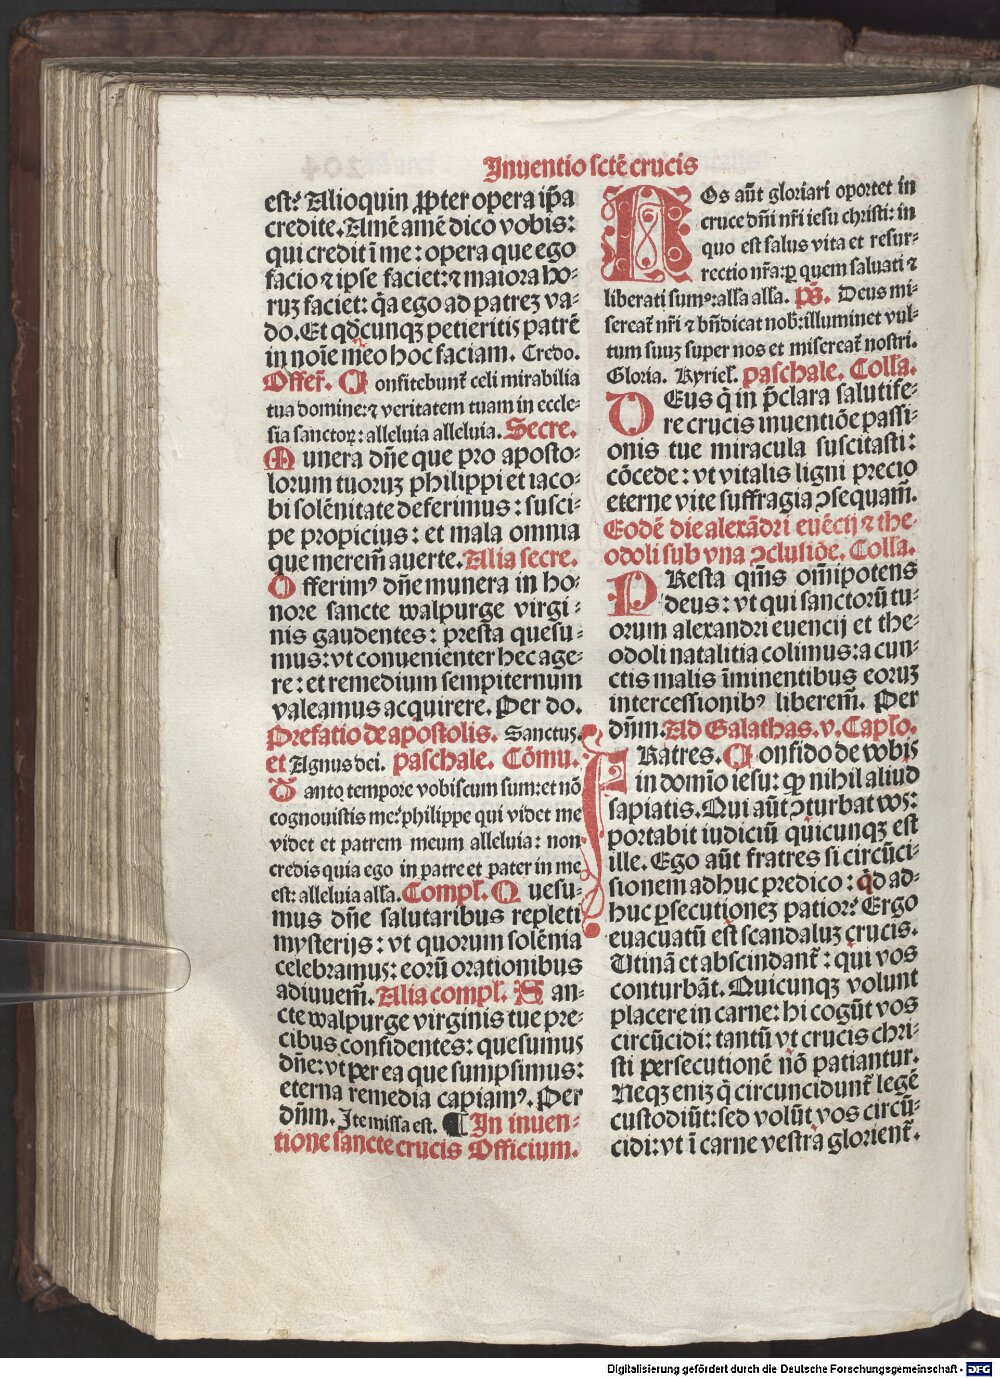 Inuentio sctẽ crucis
est? Alioquin ꝓpter opera ip̃a
credite. Amẽ amẽ dico vobis:
qui credit ĩ me: opera que ego
facio ⁊ ipse faciet: ⁊ maiora ho⸗
ruꝫ faciet: q̃a ego ad patreꝫ va⸗
do. Et qdcunqꝫ petieritis patrẽ
in noĩe meo hoc faciam. Credo.
Offer̃. Confitebunt̃ celi mirabilia
tua domine: ⁊ veritatem tuam in eccle⸗
sia sanctoꝝ: alleluia alleluia. Secre.
Munera dñe que pro aposto⸗
lorum tuoruꝫ philippi et iaco⸗
bi solẽnitate deferimus: susci⸗
pe propicius: et mala omnia
que merem̃ auerte. Alia secre.
Offerimꝰ dñe munera in ho⸗
nore sancte walpurge virgi⸗
nis gaudentes: presta quesu⸗
mus: vt conuenienter hec age⸗
re: et remedium sempiternum
valeamus acquirere. Per do.
Prefatio de apostolis. Sanctus.
et Agnus dei. paschale. Cõmu.
Tanto tempore vobiscum sum: et nõ
cognouistis me? philippe qui videt me
videt et patrem meum alleluia: non
credis quia ego in patre et pater in me
est: alleluia alla. Compl̃. Quesu⸗
mus dñe salutaribus repleti
mysterijs: vt quorum solẽnia
celebramus: eorũ orationibus
adiuuem̃. Alia compl̃. San⸗
cte walpurge virginis tue pre⸗
cibus confidentes: quesumus
dñe: vt per ea que sumpsimus:
eterna remedia capiamꝰ. Per
dñm. Ite missa est. ¶ In inuen⸗
tione sancte crucis Officium.
NOs aũt gloriari oportet in
cruce dñi nr̃i iesu christi: in
quo est salus vita et resur⸗
rectio nr̃a: ꝑ quem saluati ⁊
liberati sumꝰ: alla alla. ps̃. Deus mi⸗
sereat̃ nr̃i ⁊ bñdicat nob̃: illuminet vul⸗
tum suuꝫ super nos et misereat̃ nostri.
Gloria. Kyriel̃. paschale. Colla.
DEus q̃ in p̃clara salutife⸗
re crucis inuentiõe passi⸗
onis tue miracula suscitasti:
cõcede: vt vitalis ligni precio
eterne vite suffragia ꝯsequam̃.
Eodẽ die alexãdri euẽcij ⁊ the⸗
odoli sub vna ꝯclusiõe. Colla.
PResta qm̃s om̃ipotens
deus: vt qui sanctorũ tu⸗
orum alexandri euencij et the⸗
odoli natalitia colimus: a cun⸗
ctis malis ĩminentibus eoruꝫ
intercessionibꝰ liberem̃. Per
dñm. Ad Galathas. v. Caplo.
FRatres. Confido de vobis
in domĩo iesu: ꝙ nihil aliud
sapiatis. Qui aũt ꝯturbat vos:
portabit iudiciũ quicunqꝫ est
ille. Ego aũt fratres si circũci⸗
sionem adhuc predico: qd ad⸗
huc ꝑsecutioneꝫ patior? Ergo
euacuatũ est scandaluꝫ crucis.
Utinã et abscindant̃: qui vos
conturbãt. Quicunqꝫ volunt
placere in carne: hi cogũt vos
circũcidi: tantũ vt crucis chri⸗
sti persecutionẽ nõ patiantur.
Neqꝫ eniꝫ q̃ circuncidunt̃ legẽ
custodiũt: sed volũt vos circũ⸗
cidi: vt ĩ carne vestra glorient̃.
Digitalisierung gefördert durch die Deutsche Forschungsgemeinschaft - DFG